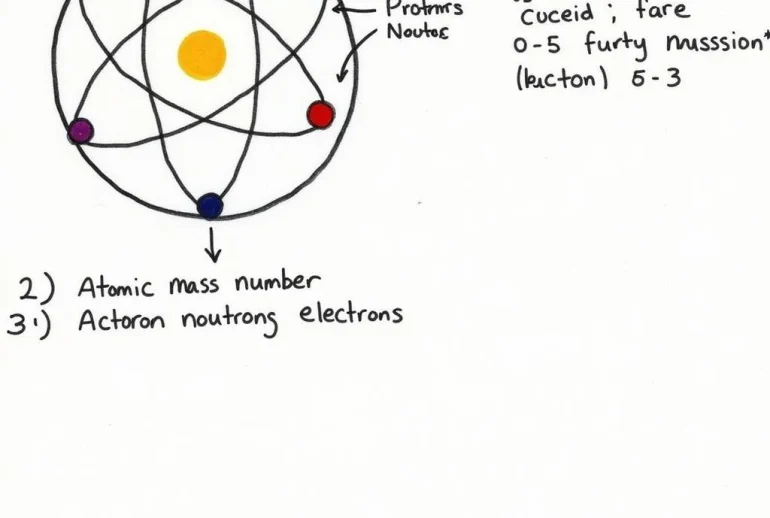 Protnrs
Noutes
Cuceid ; fare
0-5 furty musssion*
(kicton) 5-3
2) Atomic mass number
3·) Actoron noutrong electrons